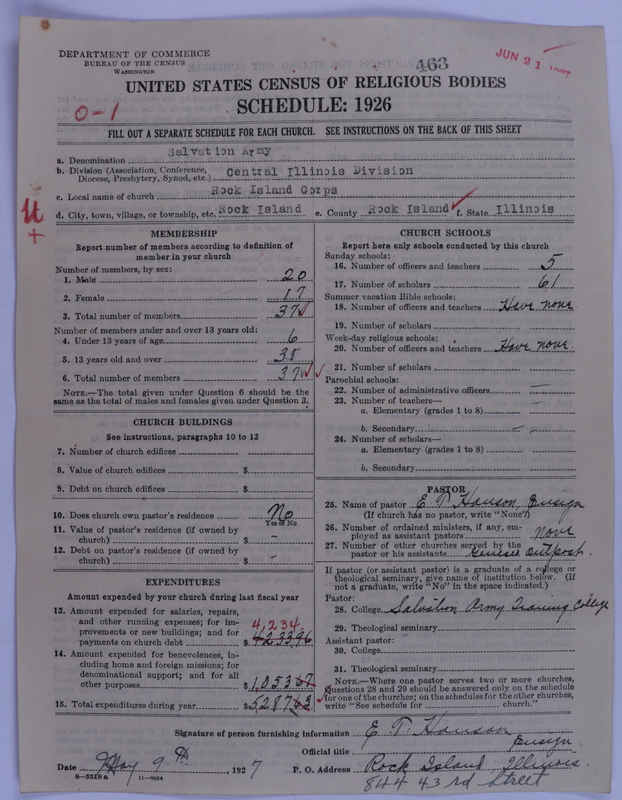 DEPARTMENT OF COMMERCE
BUREAU OF THE CENSUS
WASHINGTON
463
JUN 21
UNITED STATES CENSUS OF RELIGIOUS BODIES
SCHEDULE: 1926
0-1
FILL OUT A SEPARATE SCHEDULE FOR EACH CHURCH. SEE INSTRUCTIONS ON THE BACK OF THIS SHEET
a. Denomination Salvation Army
b. Division (Association, Conference, Diocese, Presbytery, Synod, etc.) Central Illinois Division
c. Local name of church Rock Island Corps
d. City, town, village, or township, etc. Rock Island e. County Rock Island f. State Illinois
MEMBERSHIP
Report number of members according to definition of
member in your church
Number of members, by sex:
1. Male 20
2. Female 17
3. Total number of members 37
Number of members under and over 13 years old:
4. Under 13 years of age 6
5. 13 years old and over 31
6. Total number of members 37
NOTE.—The total given under Question 6 should be
same as the total of males and females given under Question 3.
CHURCH BUILDINGS
See instructions, paragraphs 10 to 12
7. Number of church edifices
8. Value of church edifices $
9. Debt on church edifices $
10. Does church own pastor's residence No
Yes or No
11. Value of pastor's residence (if owned by
church) $ -
12. Debt on pastor's residence (if owned by
church) $ -
EXPENDITURES
Amount expended by your church during last fiscal year
13. Amount expended for salaries, repairs,
and other running expenses; for im-
provements or new buildings; and for
payments on church debt $ 4233.96
4,234
14. Amount expended for benevolences, in-
cluding home and foreign missions; for
denominational support; and for all
other purposes $ 1,053.67
15. Total expenditures during year $ 5287.63
CHURCH SCHOOLS
Report here only schools conducted by this church
Sunday schools:
16. Number of officers and teachers 5
17. Number of scholars 61
Summer vacation Bible schools:
18. Number of officers and teachers Have none
19. Number of scholars
Week-day religious schools:
20. Number of officers and teachers Have none.
21. Number of scholars
Parochial schools:
22. Number of administrative officers
23. Number of teachers—
a. Elementary (grades 1 to 8)
b. Secondary
24. Number of scholars—
a. Elementary (grades 1 to 8)
b. Secondary
PASTOR
25. Name of pastor E T Hanson, Ensign
(If church has no pastor, write "None")
26. Number of ordained ministers, if any, em-
ployed as assistant pastors None
27. Number of other churches served by the
pastor or his assistants Genesee Outpost.
If pastor (or assistant pastor) is a graduate of a college or
theological seminary, give name of institution below. (If
not a graduate, write "No" in the space indicated.)
Pastor:
28. College Salvation Army Training College
29. Theological seminary
Assistant pastor:
30. College
31. Theological seminary
NOTE.—Where one pastor serves two or more churches,
Questions 28 and 29 should be answered only on the schedule
for one of the churches; on the schedules for the other churches,
write "See schedule for church."
Signature of person furnishing information E T Hanson
Official title Ensign
Date May 9th, 1927 P. O. Address Rock Island, Illinois.
844 43rd Street
8—5518a 11—9554